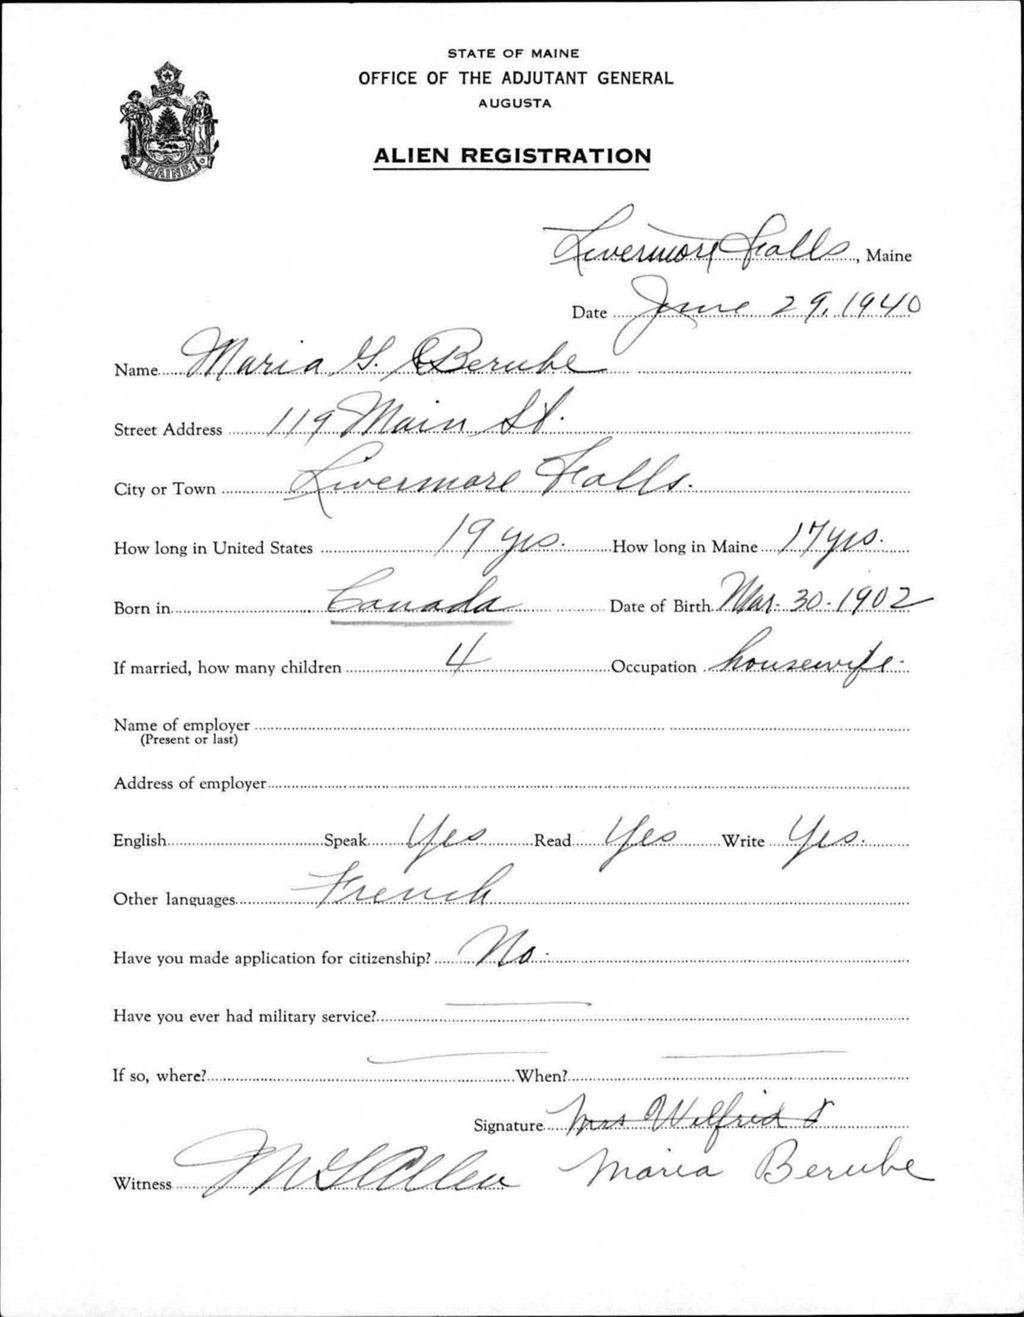 STATE OF MAINE
OFFICE OF THE ADJUTANT GENERAL
AUGUSTA
MAINE
ALIEN REGISTRATION
Livermore Falls, Maine
Date June 29, 1940
Name Maria G. Berube
Street Address 119 Main St.
City or Town Livermore Falls.
How long in United States 19 yrs. How long in Maine 17 yrs.
Born in Canada Date of Birth Mar-30-1902
If married, how many children 4 Occupation housewife-
Name of employer
(Present or last)
Address of employer
English Speak Yes Read Yes Write Yes.
Other languages French
Have you made application for citizenship? No.
Have you ever had military service? —
If so, where? — When? —
Signature Mrs Wilfrid
Witness Maria Berube